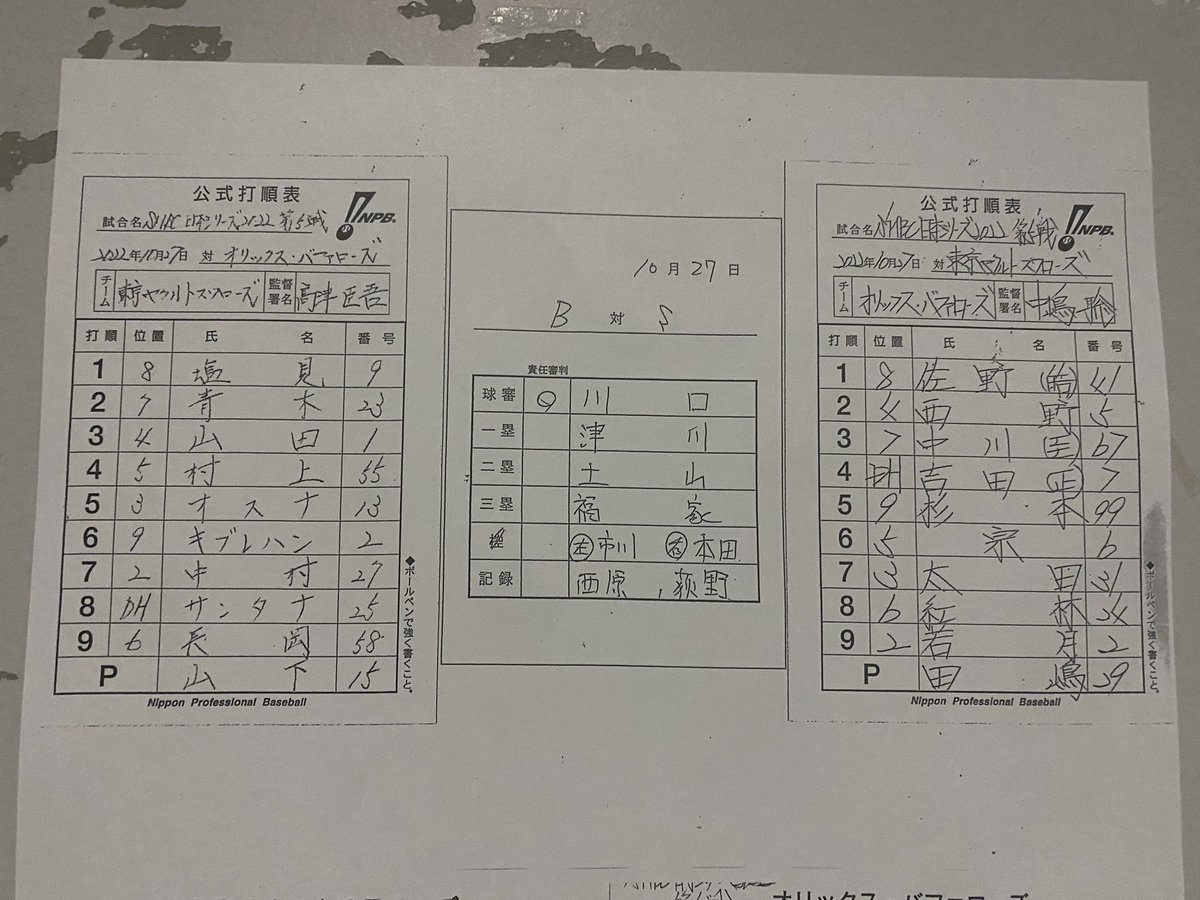 公式打順表
NPB
試合名 SMBC 日本シリーズ2022 第5戦
2022年10月27日 対 オリックス・バファローズ
チーム 東京ヤクルトスワローズ 監督署名 高津臣吾
打順 位置 氏名 番号
1 8 塩見 9
2 7 青木 23
3 4 山田 1
4 5 村上 55
5 3 オスナ 13
6 9 キブレハン 2
7 2 中村 27
8 DH サンタナ 25
9 6 長岡 58
P 山下 15
Nippon Professional Baseball
◆ボールペンで強く書くこと。
10月27日
B 対 S
責任審判
球審 ○ 川口
一塁 津川
二塁 土山
三塁 福家
左 市川 右 本田
記録 西原, 荻野
公式打順表
NPB
試合名 日本シリーズ2022 第5戦
2022年10月27日 対 東京ヤクルトスワローズ
チーム オリックス・バファローズ 監督署名 中嶋聡
打順 位置 氏名 番号
1 8 佐野(皓) 41
2 4 西野 5
3 7 中川(圭) 67
4 DH 吉田(正) 7
5 9 杉本 99
6 5 宗 6
7 3 太田 31
8 6 紅林 24
9 2 若月 2
P 田嶋 29
Nippon Professional Baseball
◆ボールペンで強く書くこと。
オリックス・バファローズ